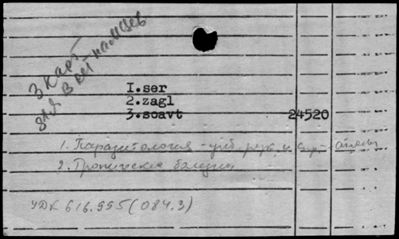 3 карт
для вьетнамцев
I.ser
2.zagl
3.soavt 24520
1. Паразитология - учеб. рук. и
2. Тропические болезни
УДК 616.995 (084.3)